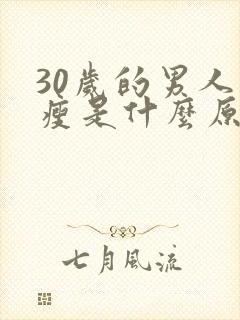 30歲的男人
瘦是什麼原
七月風流